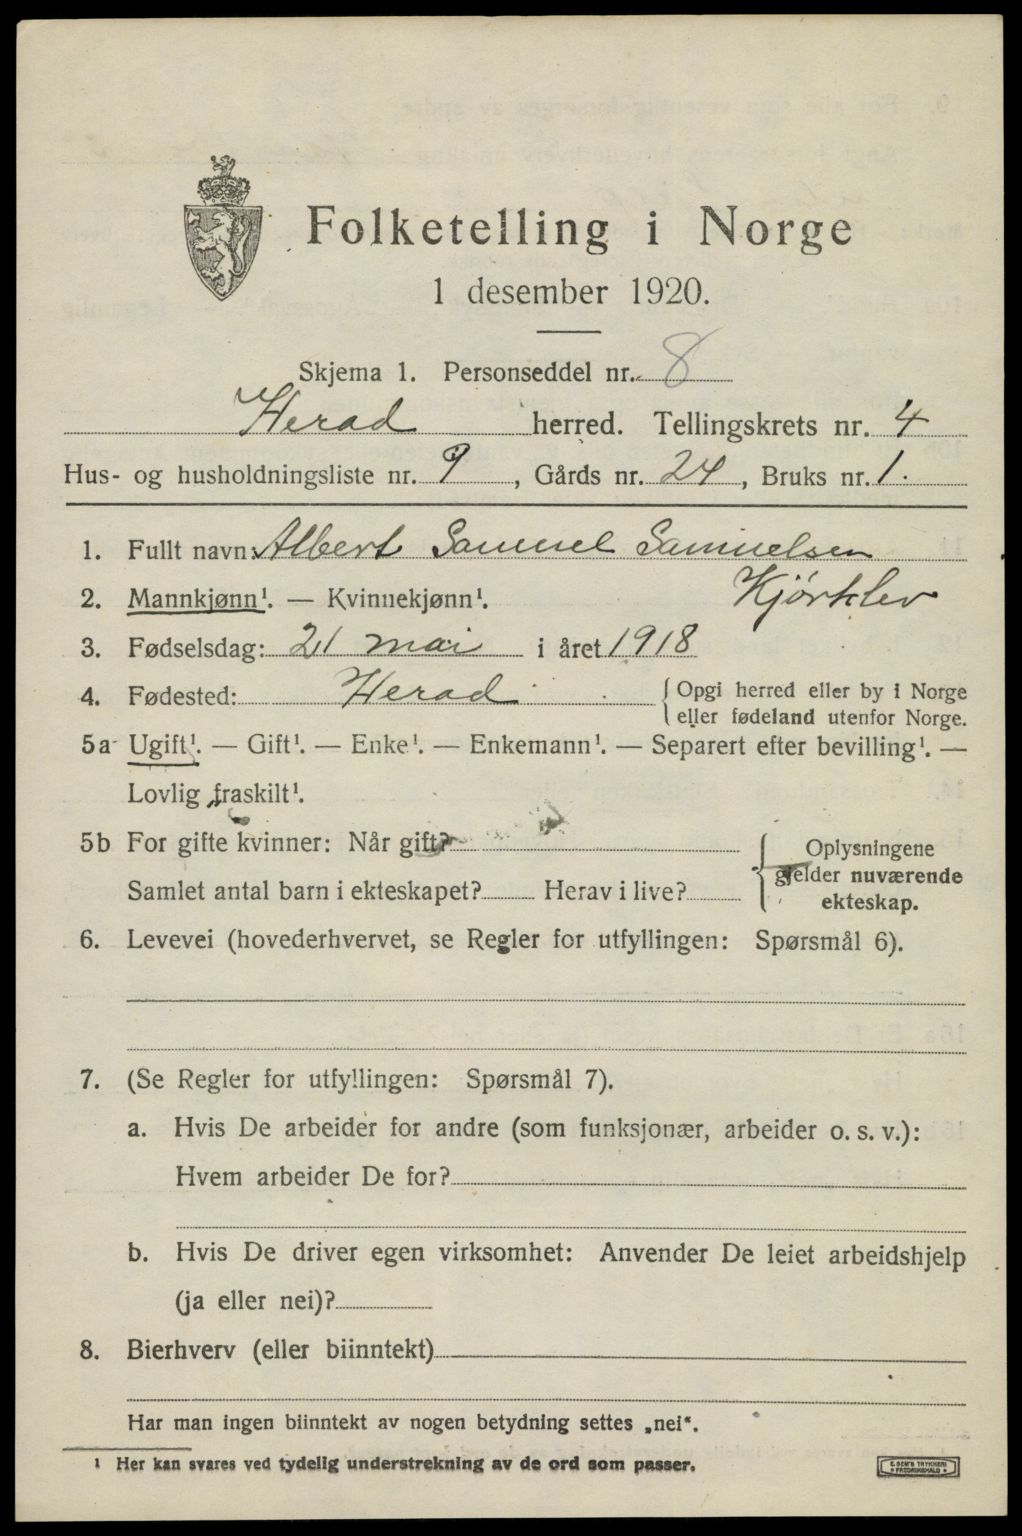 Folketelling i Norge
1 desember 1920.
Skjema 1. Personseddel nr. 8
Herad herred. Tellingskrets nr. 4
Hus- og husholdningsliste nr. 9, Gårds nr. 24, Bruks nr. 1.
1. Fullt navn: Albert Samuel Samuelsen
Kjørklev
2. Mannkjønn¹. — Kvinnekjønn¹.
3. Fødselsdag: 21 mai i året 1918
4. Fødested: Herad { Opgi herred eller by i Norge
eller fødeland utenfor Norge.
5a Ugift¹. — Gift¹. — Enke¹. — Enkemann¹. — Separert efter bevilling¹. —
Lovlig fraskilt¹.
5b For gifte kvinner: Når gift?
Samlet antal barn i ekteskapet? Herav i live?
{ Oplysningene
gjelder nuværende
ekteskap.
6. Levevei (hovederhvervet, se Regler for utfyllingen: Spørsmål 6).
7. (Se Regler for utfyllingen: Spørsmål 7).
a. Hvis De arbeider for andre (som funksjonær, arbeider o. s. v.):
Hvem arbeider De for?
b. Hvis De driver egen virksomhet: Anvender De leiet arbeidshjelp
(ja eller nei)?
8. Bierhverv (eller biinntekt)
Har man ingen biinntekt av nogen betydning settes „nei“.
¹ Her kan svares ved tydelig understrekning av de ord som passer.
E. SEM'S TRYKKERI
* FREDRIKSHALD *